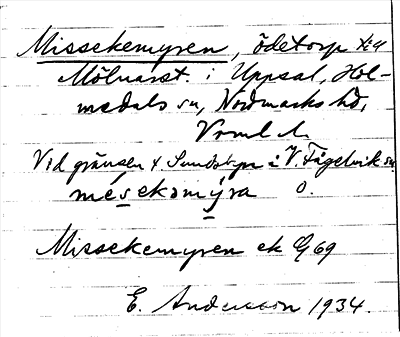 Missekemyren, ödetorp t:u
Mölnarst. i Uppsal, Hol-
medals sn, Nordmarks hd,
Vrml. l.
Vid gränsen t. Sundsbyn i V. Fågelvik sn
mesekomyra o.
Missekemyren ek G 69
E. Andersson 1934.